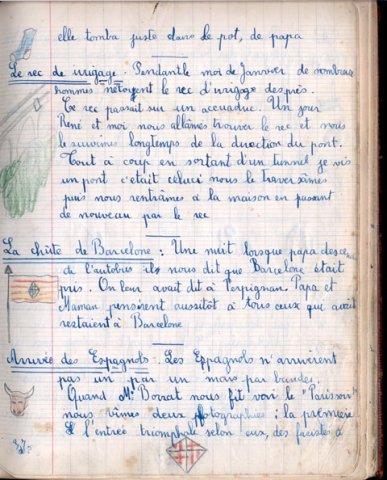 elle tomba juste dans le pot, de papa
Le rec de irrigage : Pendantle moi de Janvier de nombreux
hommes netoyent le rec d'irrigage desprès.
Ce rec passait sur un accuaduc. Un jour
René et moi nous allâmes trouver le rec et nous
le suivimes longtemps de la direction du pont.
Tout à coup en sortant d'un tunnel je vis
un pont c'etait celuci nous le traversâmes
puis nous rentrâmes à la maison en passant
de nouveau par le rec
La chûte de Barcelone : Une nuit lorsque papa descend
de l'autobus ils nous dit que Barcelone était
pris. On leur avait dit à Perpignan. Papa et
Maman pensèrent aussitôt à tous ceux qui avait
restaient à Barcelone
Arrivée des Espagnols : Les Espagnols n'arrivèrent
pas un par un mais par bandes.
Quand Mr Borrat nous fit voir le "Parisoir"
nous vîmes deux photographies : la première
l'entrée triomphale selon eux, des facistes à
37